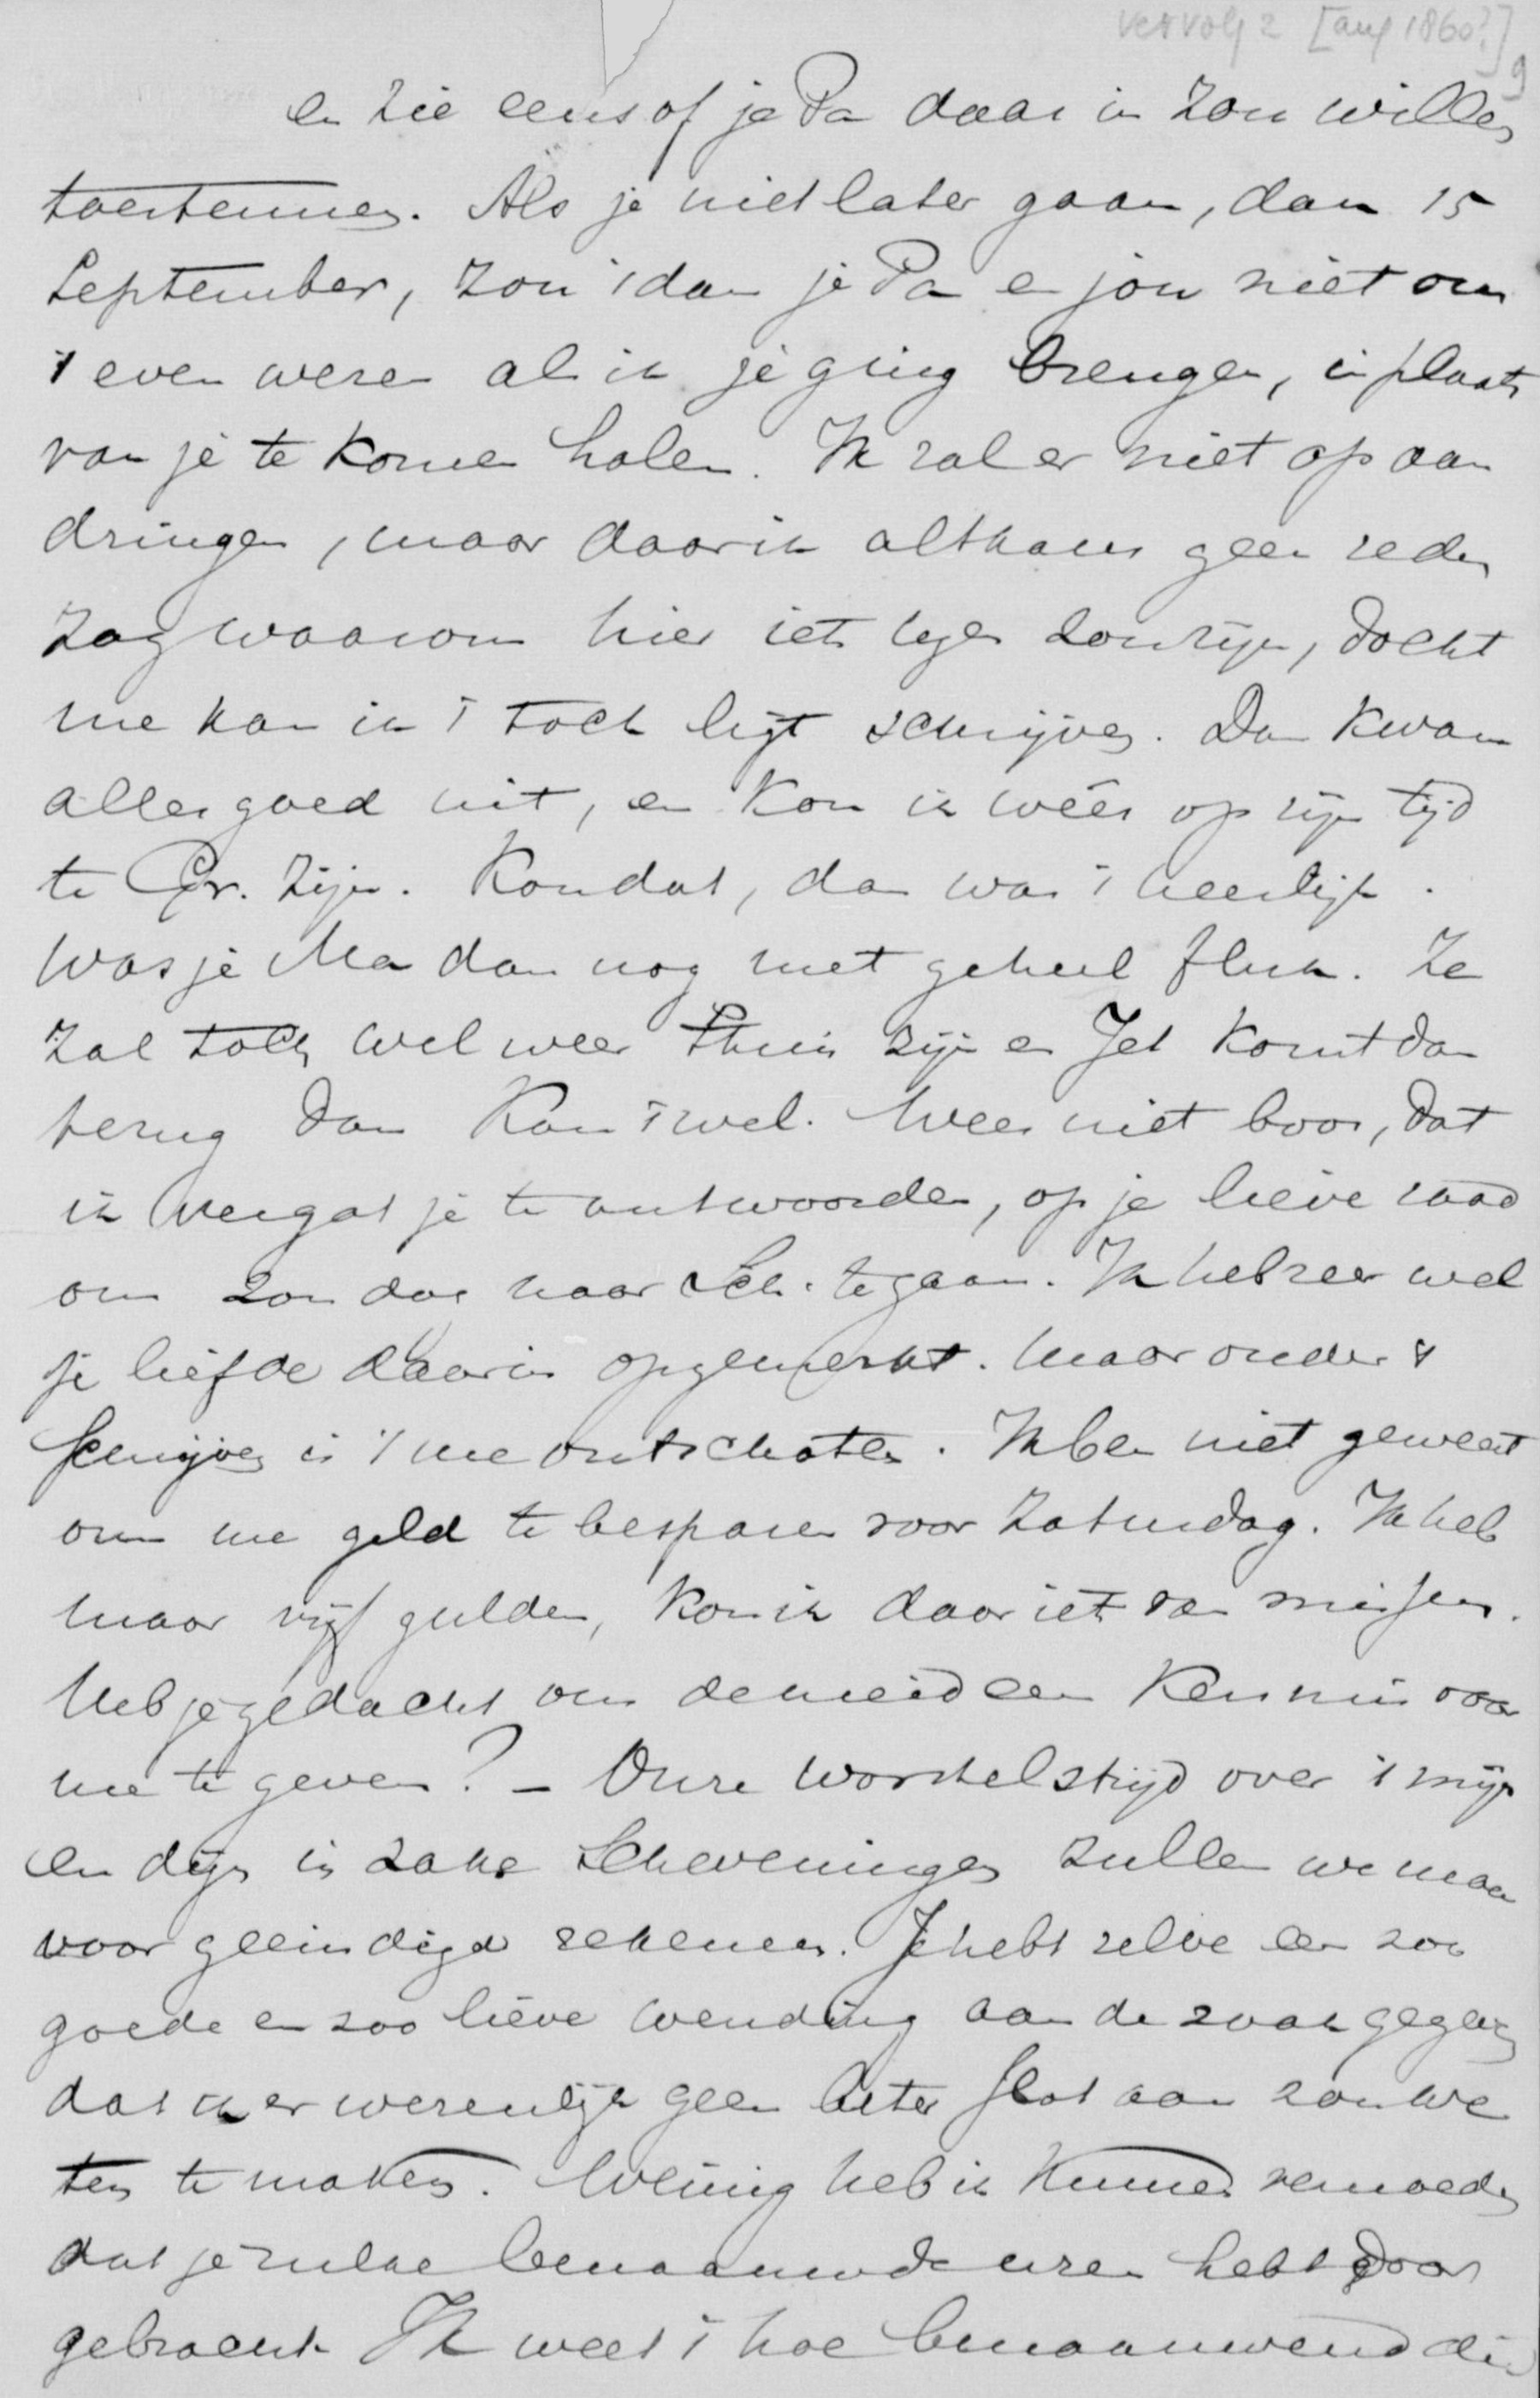 vervolg 2 [aug 1860?]
9
en zie eens of je Pa daar in zou willen
toestemmen. Als je niet later gaan, dan 15
September, zou 't dan je Pa en jou niet om
't even wezen als ik je ging brengen, in plaats
van je te komen halen. Ik zal er niet op aan
dringen, maar daar ik althans geen reden
zag waarom hier iets tegen zou zijn, docht
me kan ik 't toch ligt schrijven. Dan kwam
alles goed uit, en kon ik wéér op zijn tijd
te Gr. zijn. Kon dat, dan was 't heerlijk.
Was je Ma dan nog niet geheel fluk. Ze
zal toch wel weer thuis zijn en Jet komt dan
terug dan kan 't wel. Wees niet boos, dat
ik vergat je te antwoorden, op je lieve raad
om Zondag naar Sch. te gaan. Ik heb zeer wel
je liefde daarin opgemerkt. Maar onder 't
schrijven is 't me ontschoten. Ik ben niet geweest
om me geld te besparen voor Zaturdag. Ik heb
maar vijf gulden, kon ik daar iets van missen.
Heb je gedacht om de meid een kermis voor
me te geven? – Onze worstelstrijd over 't mijn
en dijn in zake Scheveningen zullen we maar
voor geeindigd rekenen. Je hebt zelve een zoo
goede en zoo lieve wending aan de zaak gegeven
dat ik er wezenlijk geen beter slot aan zou we
ten te maken. Weinig heb ik kunnen vermoeden
dat je zulke benaauwde uren hebt door
gebracht Ik weet 't hoe benaauwend die